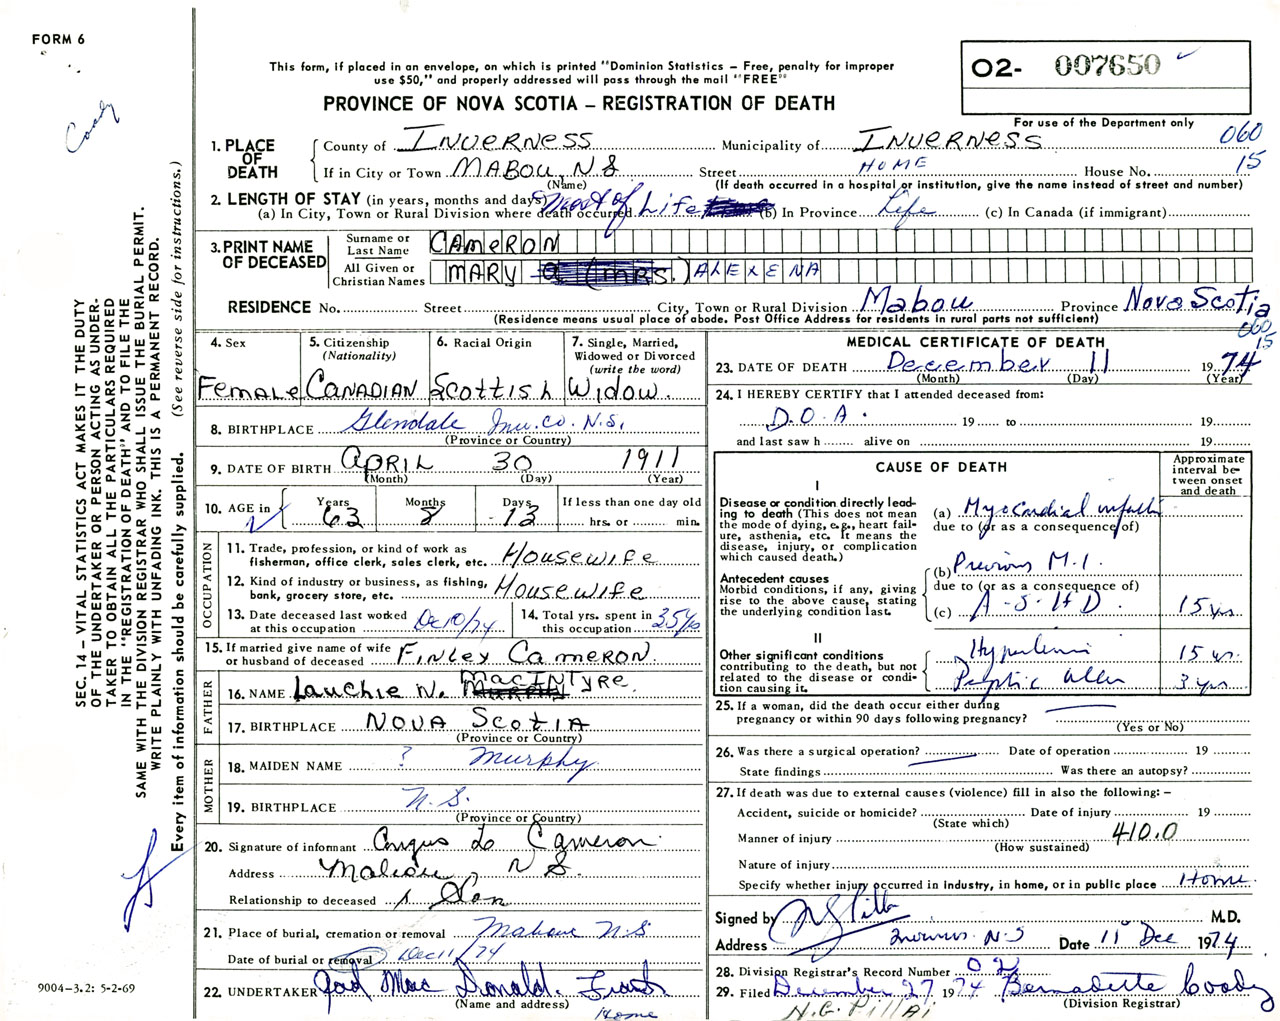 FORM 6
This form, if placed in an envelope, on which is printed "Dominion Statistics – Free, penalty for improper
use $50," and properly addressed will pass through the mail "FREE"
PROVINCE OF NOVA SCOTIA – REGISTRATION OF DEATH
O2- 007650
For use of the Department only
Coady
060
15
1. PLACE OF DEATH
County of INVERNESS Municipality of INVERNESS
If in City or Town MABOU, N.S Street HOME House No.
(Name) (If death occurred in a hospital or institution, give the name instead of street and number)
2. LENGTH OF STAY (in years, months and days)
(a) In City, Town or Rural Division where death occurred. Most of Life (b) In Province Life (c) In Canada (if immigrant)
3. PRINT NAME OF DECEASED
Surname or Last Name CAMERON
All Given or Christian Names MARY (MRS.) ALEXENA
RESIDENCE No. Street City, Town or Rural Division Mabou Province Nova Scotia
(Residence means usual place of abode. Post Office Address for residents in rural parts not sufficient)
060
15
4. Sex Female
5. Citizenship (Nationality) CANADIAN
6. Racial Origin Scottish
7. Single, Married, Widowed or Divorced (write the word) Widow.
8. BIRTHPLACE Glendale Inv. Co. N.S.
(Province or Country)
9. DATE OF BIRTH APRIL 30 1911
(Month) (Day) (Year)
10. AGE in Years 63 Months 8 Days 12 If less than one day old hrs. or min.
OCCUPATION
11. Trade, profession, or kind of work as fisherman, office clerk, sales clerk, etc. Housewife
12. Kind of industry or business, as fishing, bank, grocery store, etc. Housewife
13. Date deceased last worked at this occupation Dec 10/74
14. Total yrs. spent in this occupation 35
15. If married give name of wife or husband of deceased Finley Cameron.
FATHER
16. NAME Lauchie N. MacINTyre.
17. BIRTHPLACE NOVA Scotia
(Province or Country)
MOTHER
18. MAIDEN NAME ? Murphy
19. BIRTHPLACE N.S.
(Province or Country)
20. Signature of informant Angus Cameron
Address Mabou, N S.
Relationship to deceased Son
21. Place of burial, cremation or removal Mabou N.S
Date of burial or removal Dec 11/74
22. UNDERTAKER Mac Donald.
(Name and address)
Home
MEDICAL CERTIFICATE OF DEATH
23. DATE OF DEATH December 11 1974
(Month) (Day) (Year)
24. I HEREBY CERTIFY that I attended deceased from:
D.O.A. 19 to 19
and last saw h alive on 19
CAUSE OF DEATH
Approximate interval between onset and death
I
Disease or condition directly leading to death (This does not mean the mode of dying, e.g., heart failure, asthenia, etc. It means the disease, injury, or complication which caused death.)
(a) Myocardial
due to (or as a consequence of)
(b) Previous M.I.
due to (or as a consequence of)
(c) A-S-H D. 15 yrs
Antecedent causes
Morbid conditions, if any, giving rise to the above cause, stating the underlying condition last.
II
Other significant conditions contributing to the death, but not related to the disease or condition causing it.
15 yrs.
Peptic ulcer 3 yrs
25. If a woman, did the death occur either during pregnancy or within 90 days following pregnancy?
(Yes or No)
26. Was there a surgical operation? Date of operation 19
State findings Was there an autopsy?
27. If death was due to external causes (violence) fill in also the following: –
Accident, suicide or homicide? Date of injury 19
(State which)
Manner of injury 410.0
(How sustained)
Nature of injury
Specify whether injury occurred in industry, in home, or in public place Home
Signed by M.D.
Address N.S Date 11 Dec 1974
28. Division Registrar's Record Number 02
29. Filed December 27 1974 Bernadette Coady
(Division Registrar)
N.G. Pillai
SEC. 14 – VITAL STATISTICS ACT MAKES IT THE DUTY
OF THE UNDERTAKER OR PERSON ACTING AS UNDERTAKER TO OBTAIN ALL THE PARTICULARS REQUIRED
IN THE "REGISTRATION OF DEATH" AND TO FILE THE
SAME WITH THE DIVISION REGISTRAR WHO SHALL ISSUE THE BURIAL PERMIT.
WRITE PLAINLY WITH UNFADING INK. THIS IS A PERMANENT RECORD.
Every item of information should be carefully supplied. (See reverse side for instructions.)
9004-3.2: 5-2-69